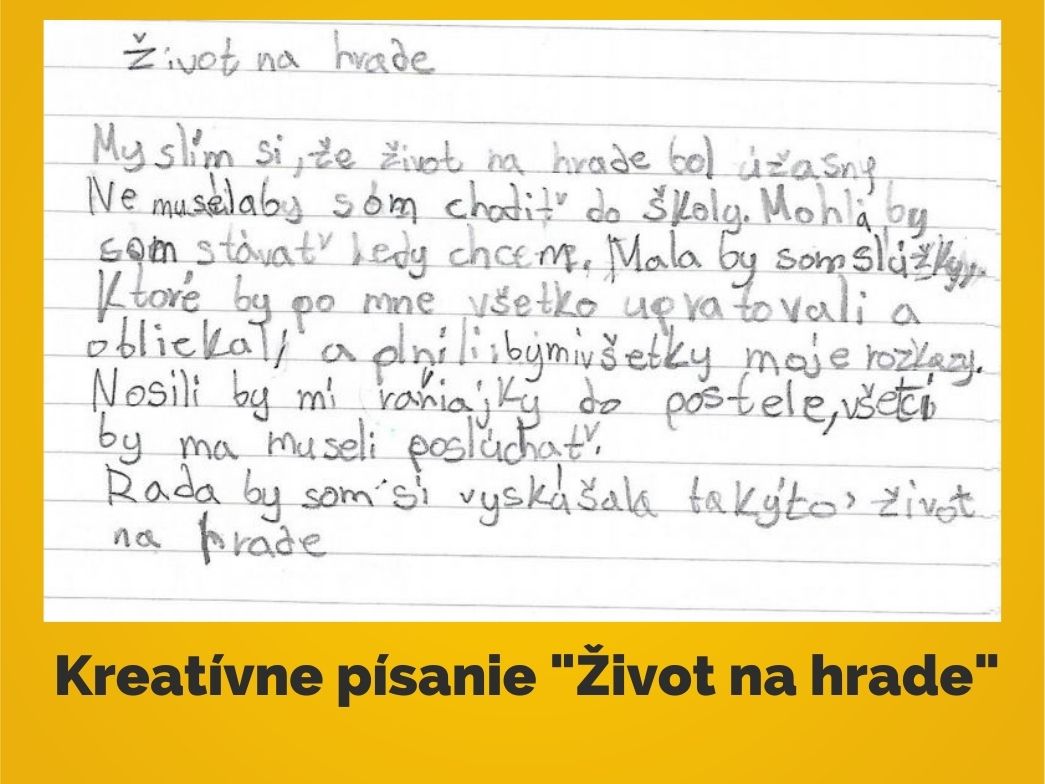 Život na hrade
Myslím si, že život na hrade bol úžasny
Ne muselaby som chodiť do školy. Mohla by
som stávať kedy chcem. Mala by som slúžky,
Ktoré by po mne všetko upratovali a
obliekali a plnili by mi všetky moje rozkazy.
Nosili by mi raňajky do postele, všetci
by ma museli poslúchať.
Rada by som si vyskúšala takýto život
na hrade
Kreatívne písanie "Život na hrade"